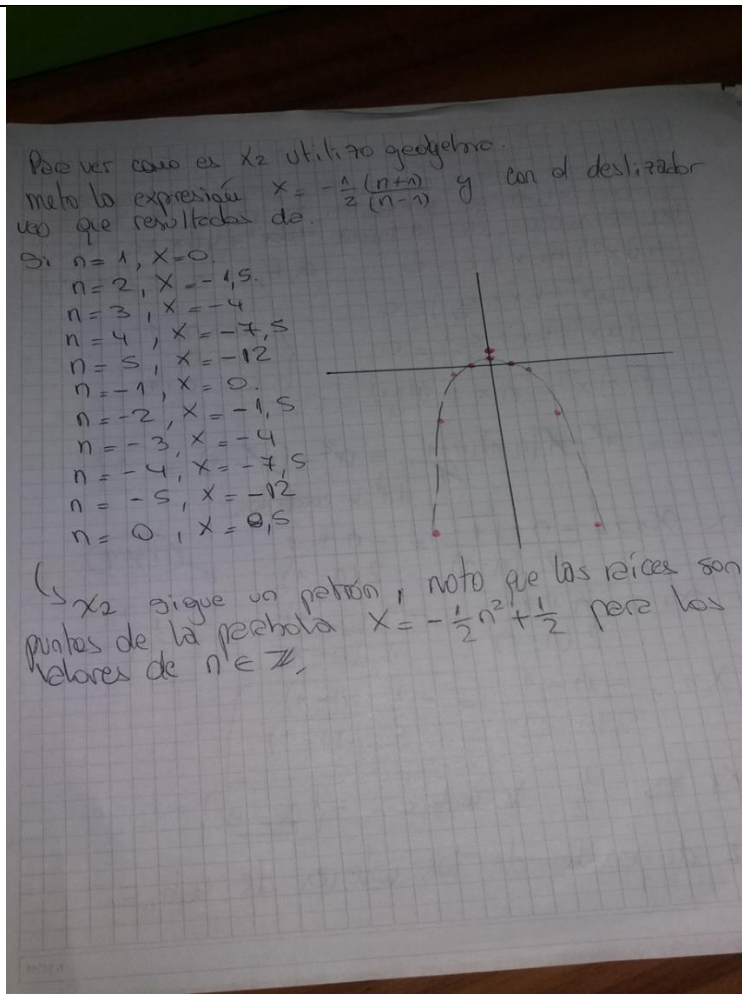 Para ver como es x2 utilizo geogebra.
meto la expresión x = -1/2 (n+1)/(n-1) y con el deslizador
veo que resultados da.
Si n=1, x=0
n=2, x=-1,5.
n=3, x=-4
n=4, x=-7,5
n=5, x=-12
n=-1, x=0.
n=-2, x=-1,5
n=-3, x=-4
n=-4, x=-7,5
n=-5, x=-12
n=0, x=0,5
↳ x2 sigue un patrón, noto que las raíces son
puntos de la parábola x = -1/2 n² + 1/2 para los
valores de n ∈ ℤ.